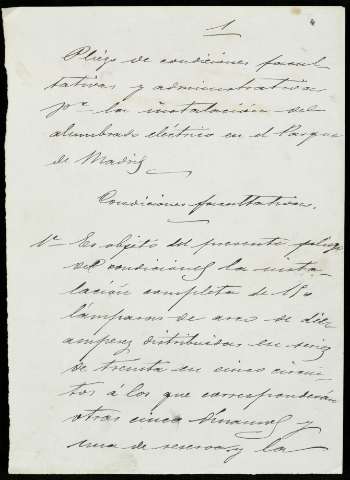 1
Pliego de condiciones facul
tativas y administrativas
pª la instalación del
alumbrado eléctrico en el Parque
de Madrid
Condiciones facultativas.
1ª Es objeto del presente pliego
de condiciones la insta-
lación completa de 150
lámparas de arco de diez
amperes distribuidas en series
de treinta en cinco circui-
tos á los que corresponderán
otras cinco dinamos y
una de reserva y la